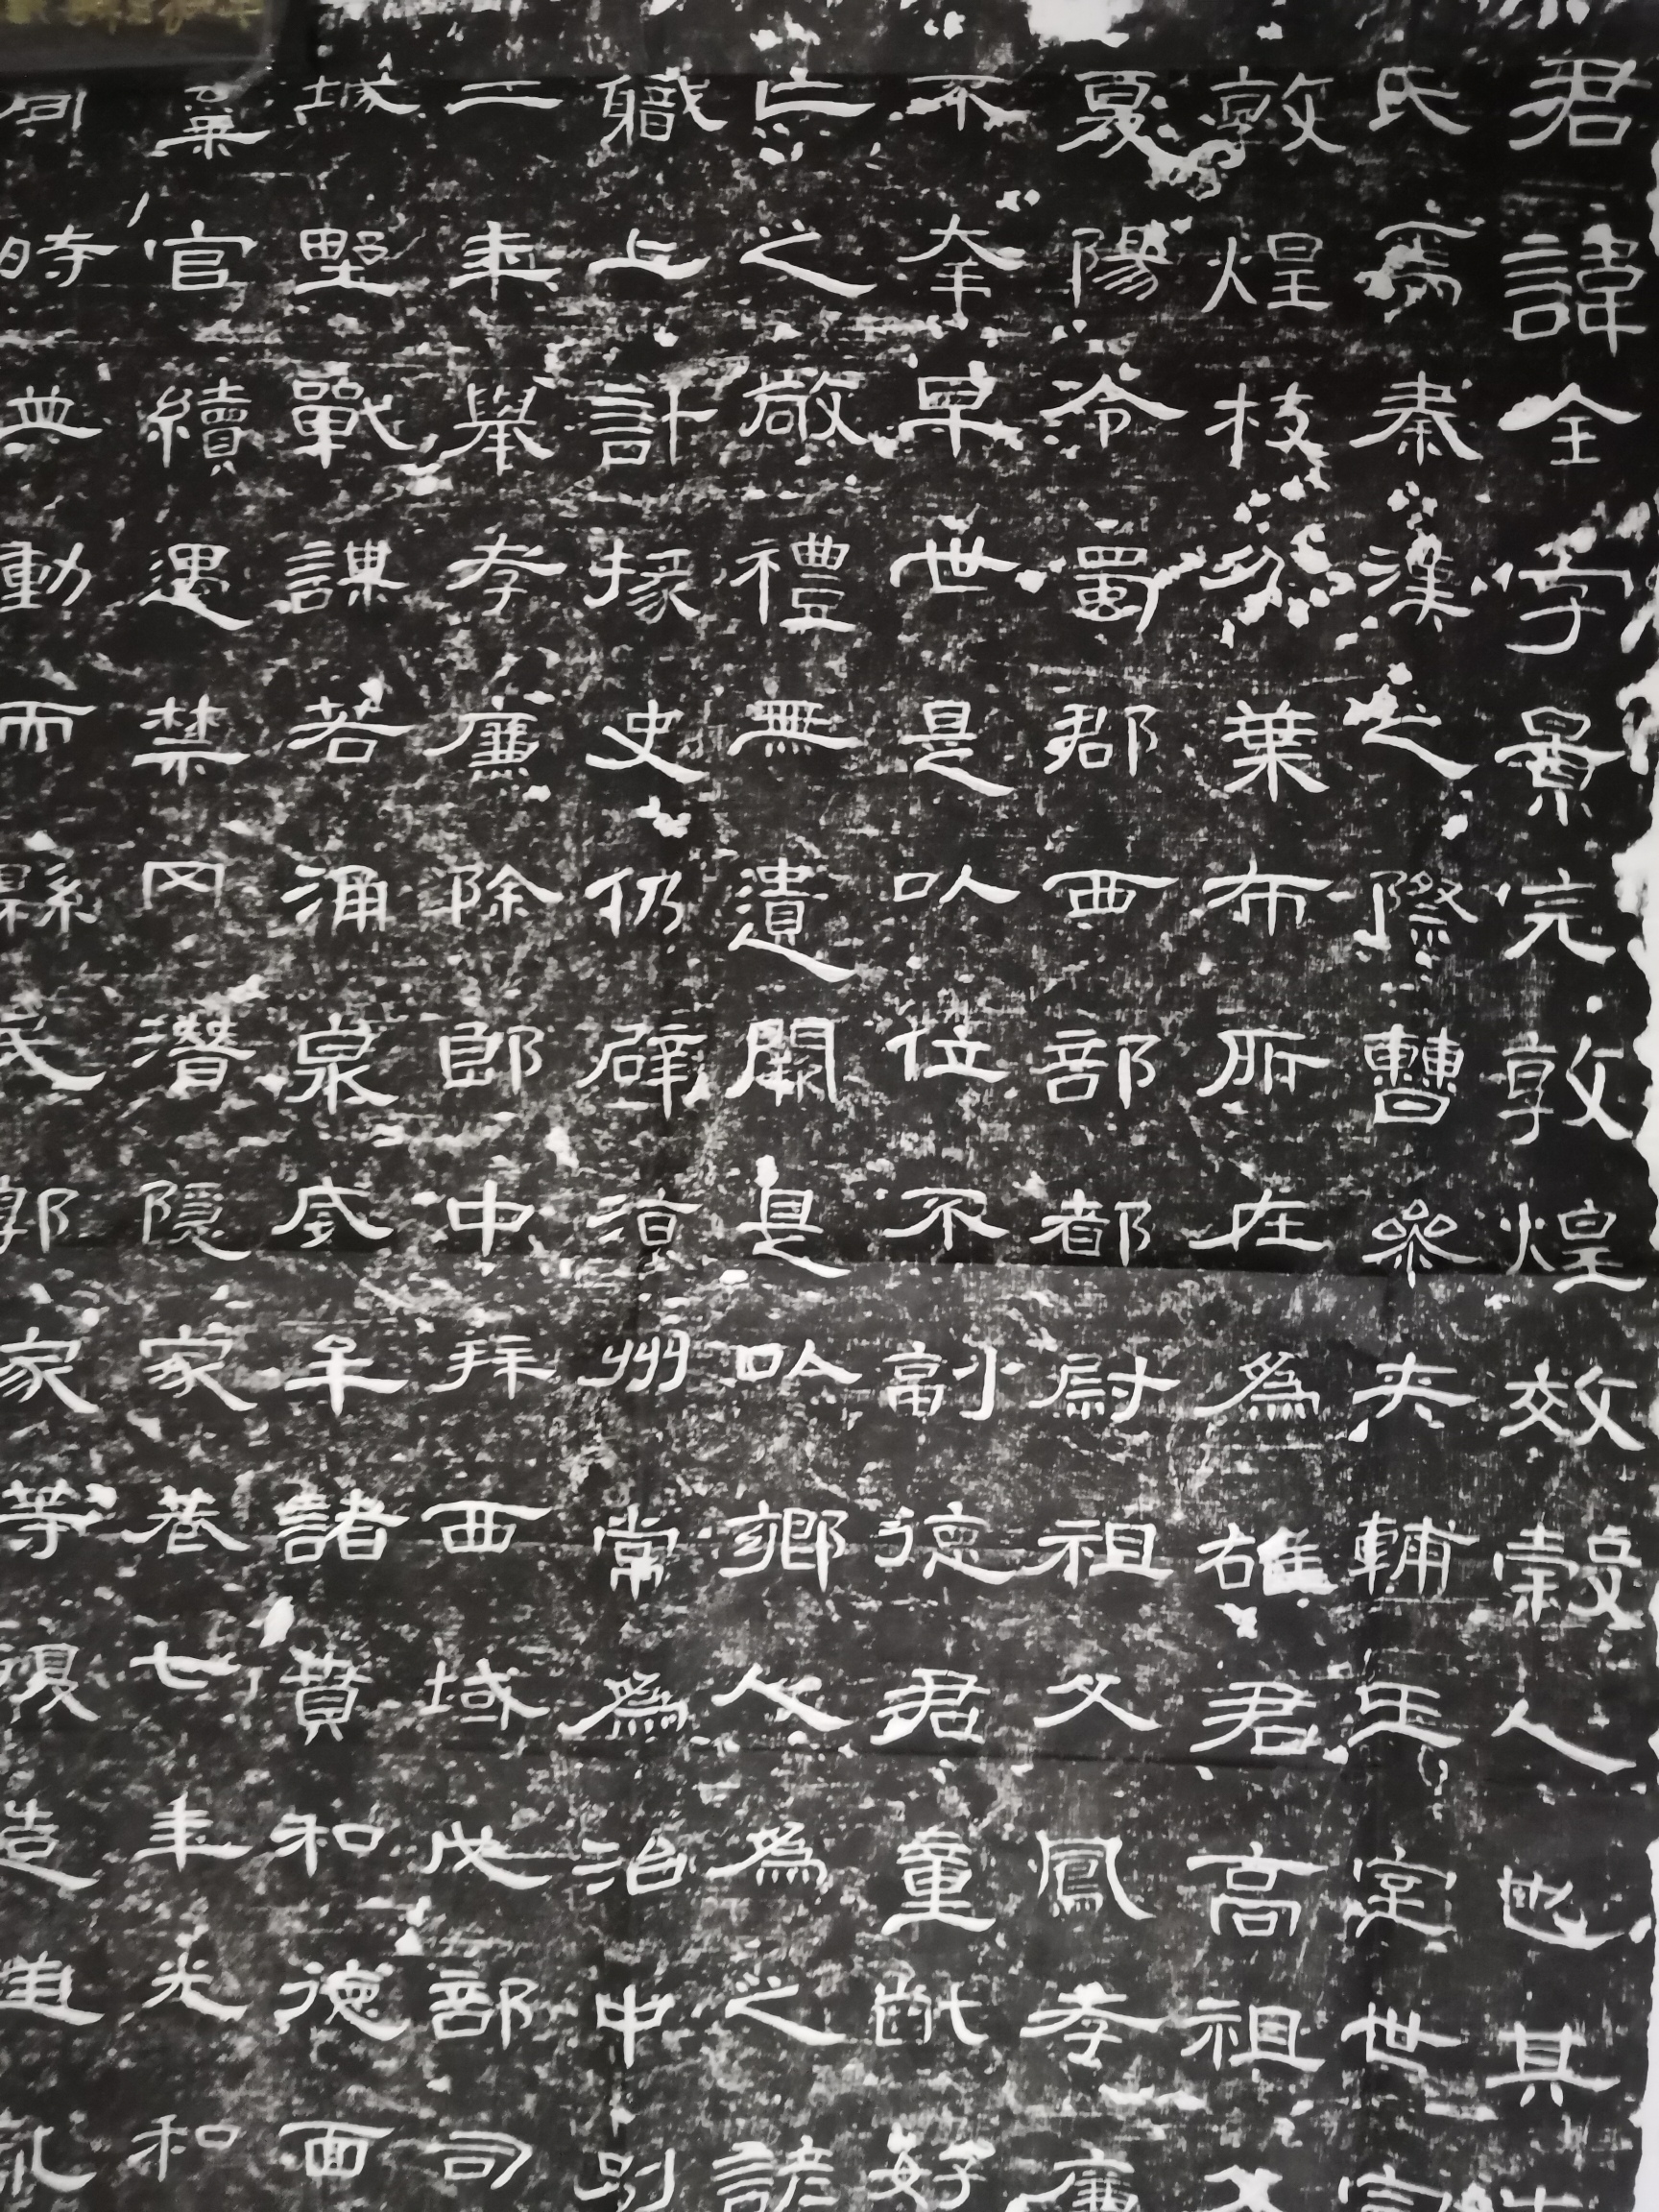 君諱全字景完敦煌效穀人也其
氏焉秦漢之際曹參夾輔王室世宗
敦煌枝分葉布所在為雄君高祖父
夏陽令蜀郡西部都尉祖父鳳孝廉
不幸早世是以位不副德君童齔好
亡之敬禮無遺闕是以鄉人為之諺
職上計掾史仍辟涼州常為治中別
二年舉孝廉除郎中拜西域戊部司
城野戰謀若涌泉威牟諸賁和德面
棄官續遇禁冈潛隱家巷七年光和
同時並動而縣民郭家等復造逆亂